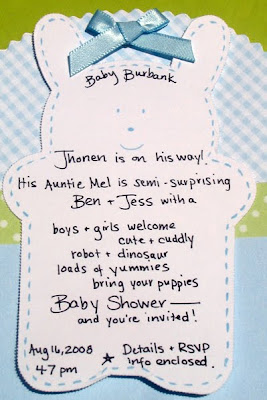 Baby Burbank
Jhonen is on his way!
His Auntie Mel is semi-surprising
Ben + Jess with a
boys + girls welcome
cute + cuddly
robot + dinosaur
loads of yummies
bring your puppies
Baby Shower —
and you're invited!
Aug 16, 2008 ★ Details + RSVP
4-7 pm info enclosed.